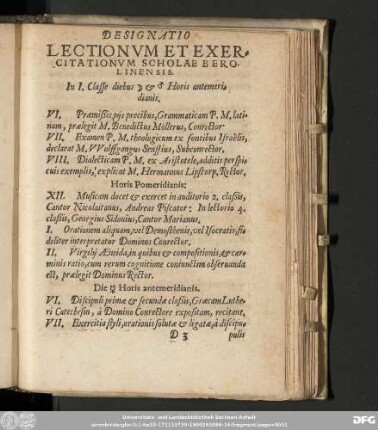 DESIGNATIO
LECTIONVM ET EXER-
CITATIONVM SCHOLAE BERO-
LINENSIS.
In I. Classe diebus ☽ & ♂ Horis antemeri-
dianis.
VI. Præmissis pijs precibus, Grammaticam P. M. lati-
nam, prælegit M. Benedictus Möllerus, Conrector.
VII. Examen P. M. theologicum ex fontibus Israëlis,
declarat M. VVolffgangus Senffius, Subconrector.
VIII. Dialecticam P. M. ex Aristotele, additis perspi-
cuis exemplis, explicat M. Hermannus Lipstorp, Rector.
Horis Pomeridianis:
XII. Musicam docet & exercet in auditorio 2. classis,
Cantor Nicolaitanus, Andreas Piscator: In lectorio 4.
classis, Georgius Sidonius, Cantor Marianus.
I. Orationem aliquam, vel Demosthenis, vel Isocratis, fi-
deliter interpretatur Dominus Conrector.
II. Virgilij Æneida, in quibus & compositionis, & car-
minis ratio, cum rerum cognitione coniunctim obseruanda
est, prælegit Dominus Rector.
Die ☿ Horis antemeridianis.
VI. Discipuli primæ & secundæ classis, Græcam Luthe-
ri Catechesin, à Domino Conrectore expositam, recitant.
VII. Exercitia styli, orationis solutæ & ligatæ, à discipu-
D 3 pulis
Universitäts- und Landesbibliothek Sachsen-Anhalt